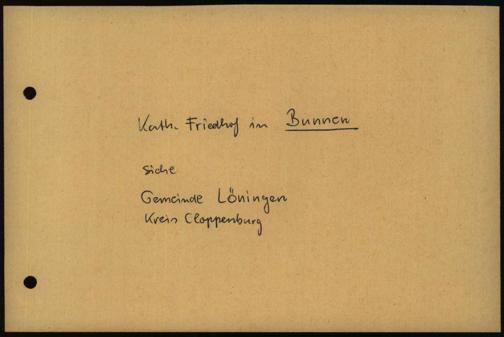 Kath. Friedhof in Bunnen
siehe
Gemeinde Löningen
Kreis Cloppenburg